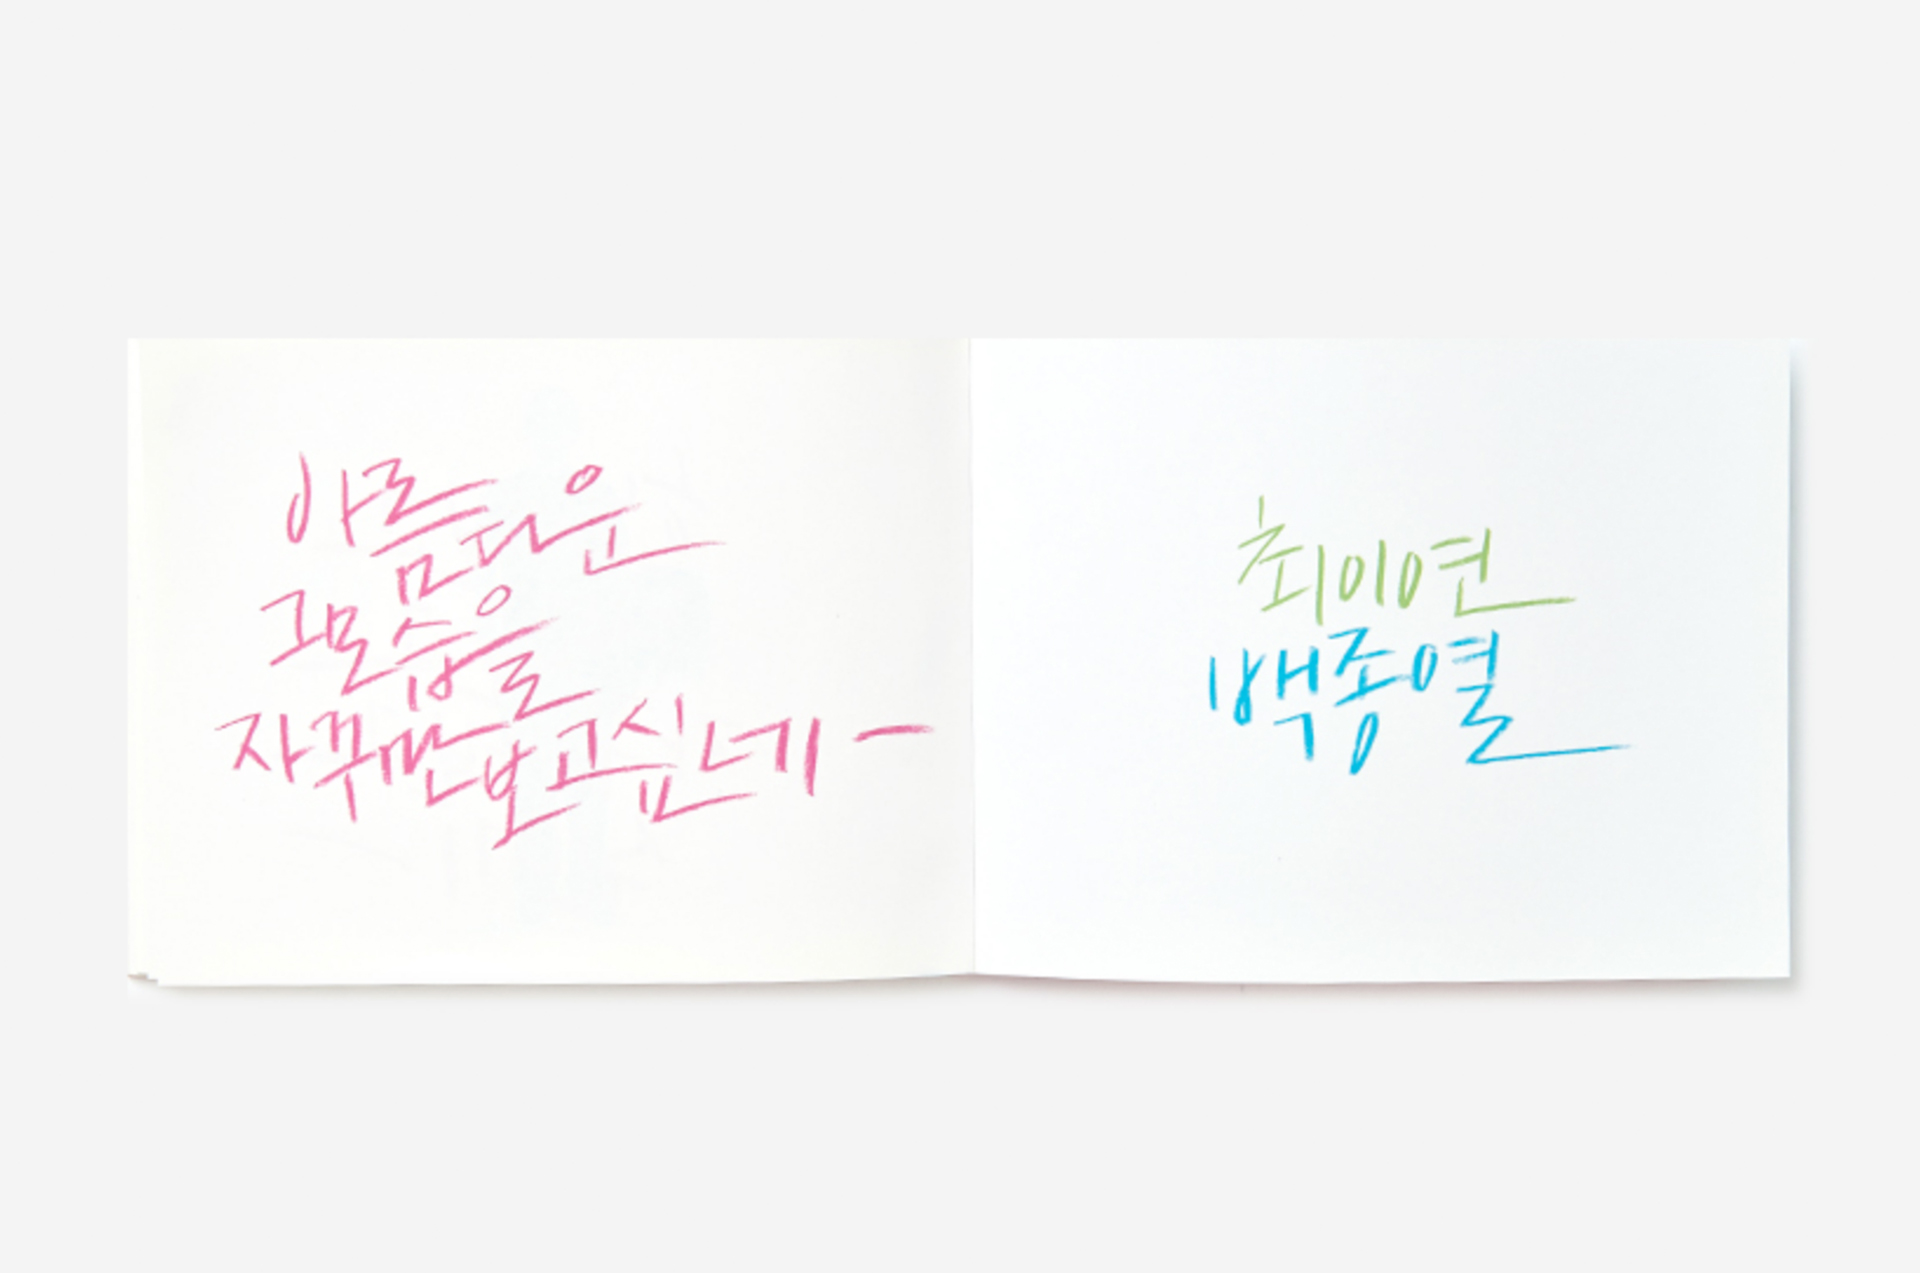 아름다운
그 모습을
자꾸만 보고 싶네 –
최이연
백종열